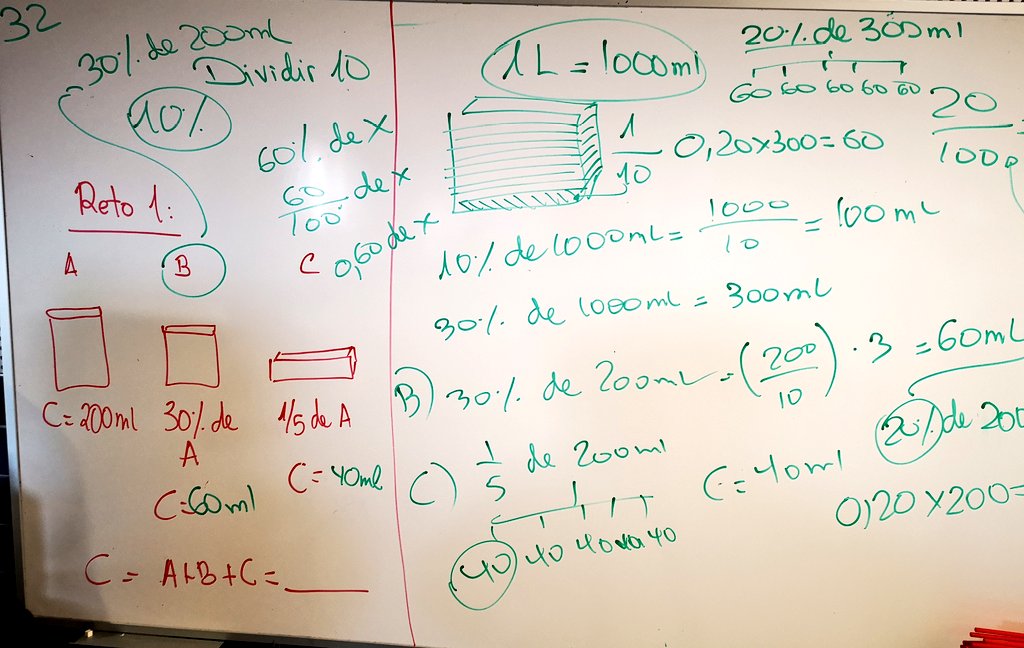 32
30% de 200ml
Dividir 10
10%
60% de x
60/100 de x
0,60 de x
Reto 1:
A B C
C=200ml 30% de A 1/5 de A
C=60ml C=40ml
C = A+B+C = ______
1L = 1000ml
20% de 300ml
60 60 60 60 60
1/10 0,20x300=60
20/100
10% de 1000ml = 1000/10 = 100ml
30% de 1000ml = 300ml
B) 30% de 200ml = (200/10) · 3 = 60ml
20% de 200
C) 1/5 de 200ml C=40ml
0,20x200=
40 40 40 40 40